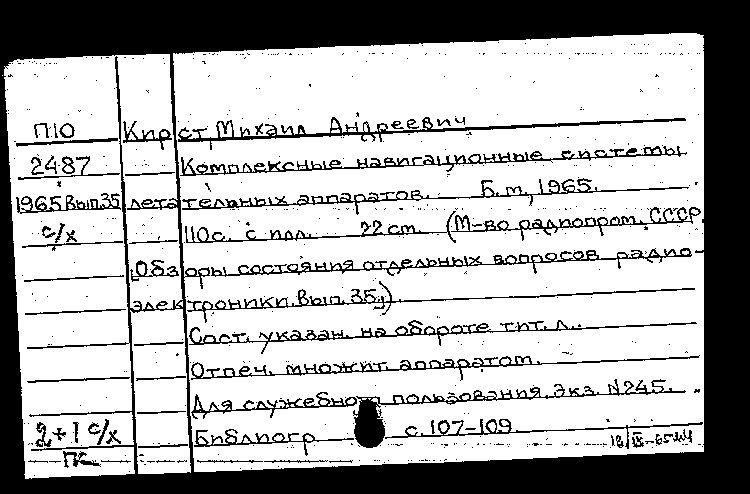 П10 Кирст, Михаил Андреевич
2487 Комплексные навигационные системы
1965 Вып.35 летательных аппаратов. Б.м., 1965.
с/х 110с. с илл. 22 см. (М-во радиопром. СССР.
Обзоры состояния отдельных вопросов радио-
электроники. Вып. 35.)
Сост. указан. на обороте тит. л..
Отпеч. множит. аппаратом.
Для служебного пользования. Экз. N245.
2+1 с/х Библиогр. с. 107-109